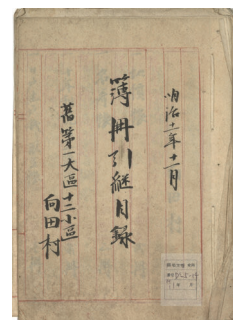 明治十一年十一月
簿冊引継目録
舊第一大區十二小區
向田村